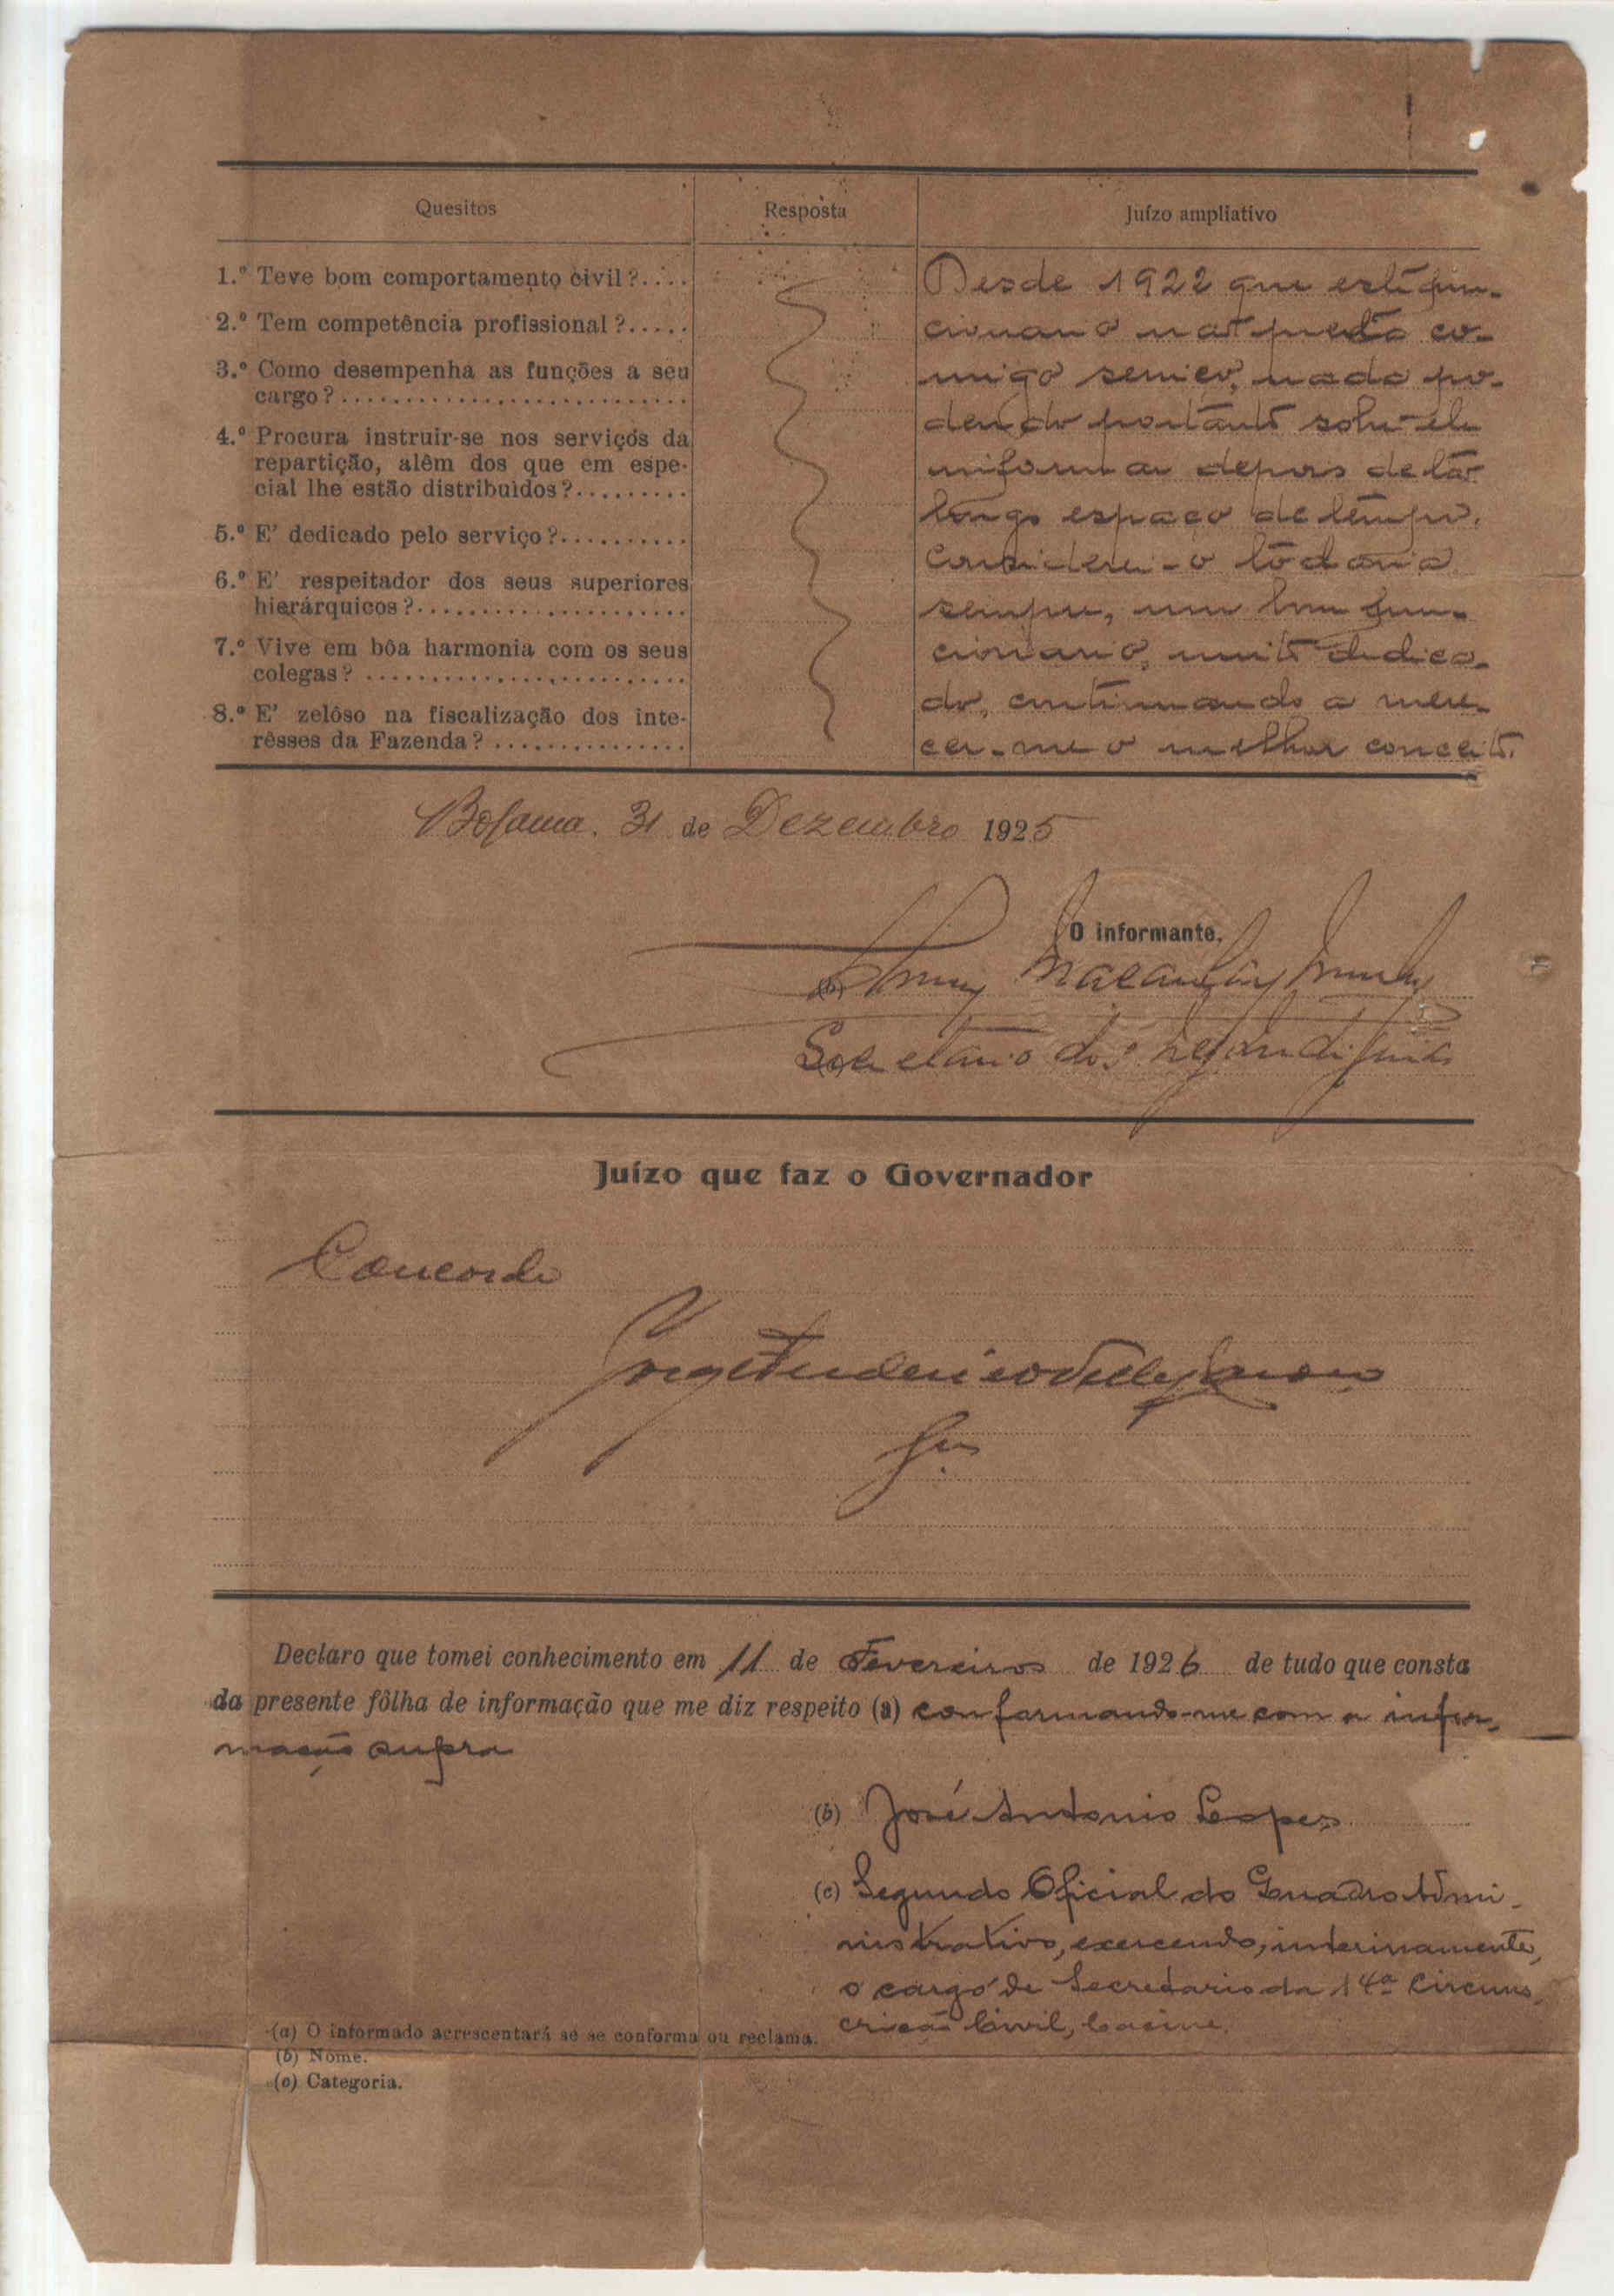 Quesitos
Resposta
Juízo ampliativo
1.º Teve bom comportamento civil?.....
2.º Tem competência profissional?.....
3.º Como desempenha as funções a seu
cargo?...........................
4.º Procura instruir-se nos serviços da
repartição, alêm dos que em espe-
cial lhe estão distribuìdos?.........
5.º E' dedicado pelo serviço?..........
6.º E' respeitador dos seus superiores
hierárquicos?.....................
7.º Vive em bôa harmonia com os seus
colegas? .........................
8.º E' zelôso na fiscalização dos inte-
rêsses da Fazenda? ...............
Desde 1922 que este fun-
cionario não presta co-
migo serviço, nada po-
dendo portanto sobre ele
informar depois de tão
longo espaço de tempo.
Considerei-o todavia
sempre, um bom fun-
cionario, muito dedica-
do, continuando a mere-
cer-me o melhor conceito.
Bolama. 31 de Dezembro 1925
O informante,
(b)
Secretario dos
Juízo que faz o Governador
Concordo
Declaro que tomei conhecimento em 11 de Fevereiro de 1926 de tudo que consta
da presente fôlha de informação que me diz respeito (a) conformando-me com a infor-
mação supra
(b) José Antonio Lopes
(c) Segundo Oficial do Quadro Admi-
nistrativo, exercendo, interinamente,
o cargo de Secretario da 14ª Circuns-
crição Civil, Cacine.
(a) O informado acrescentará se se conforma ou reclama.
(b) Nome.
(c) Categoria.